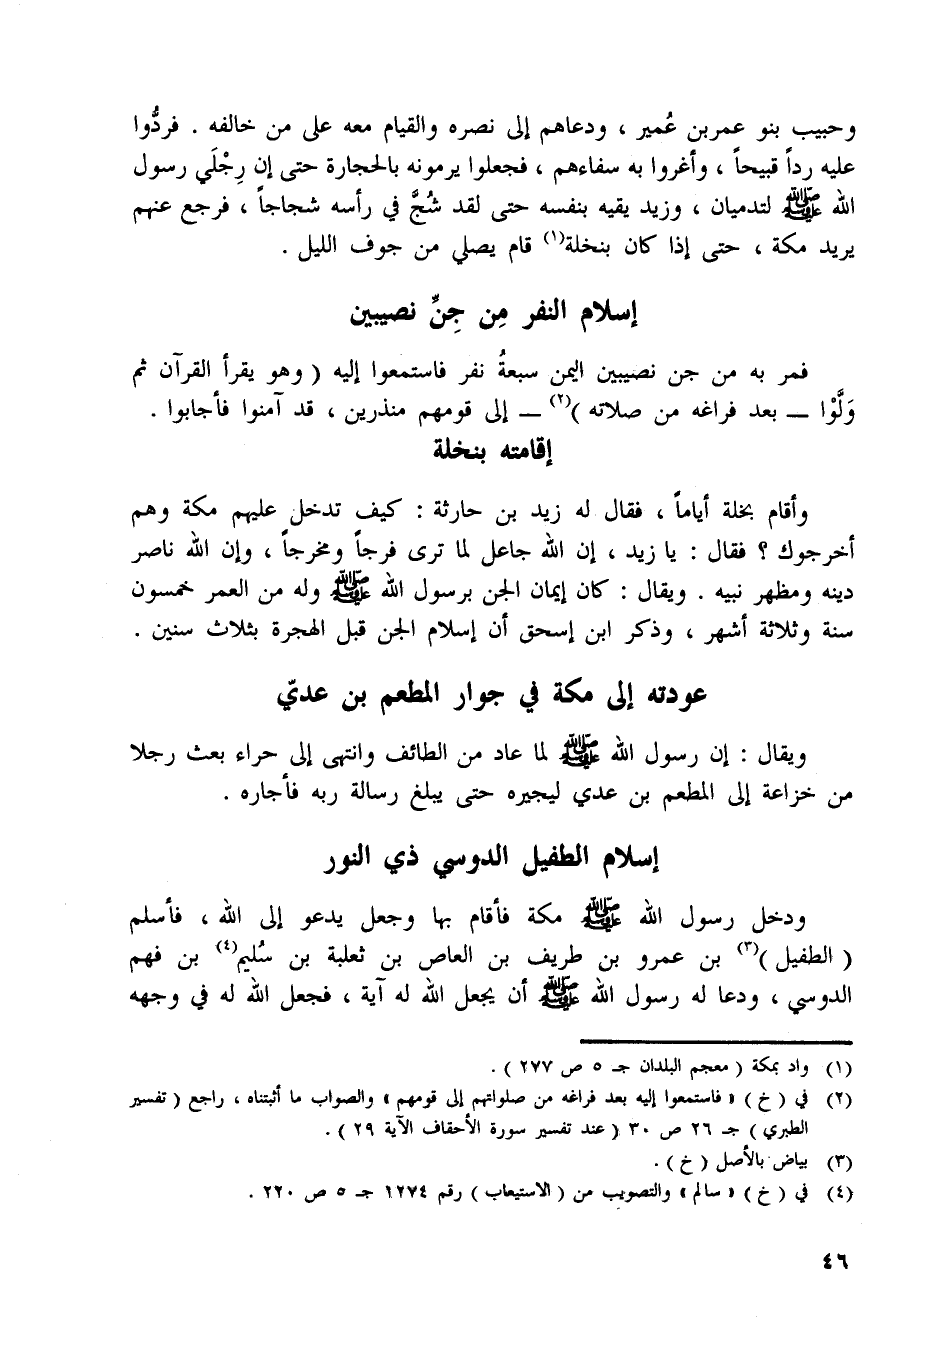 وحبيب بنو عمربن عُمير ، ودعاهم إلى نصره والقيام معه على من خالفه . فردُّوا
عليه رداً قبيحاً ، وأغروا به سفاءهم ، فجعلوا يرمونه بالحجارة حتى إن رِجْلَي رسول
الله ﷺ لتدميان ، وزيد يقيه بنفسه حتى لقد شُجَّ في رأسه شجاجاً ، فرجع عنهم
يريد مكة ، حتى إذا كان بنخلة(١) قام يصلي من جوف الليل .
إسلام النفر مِن جِنِّ نصيبين
فمر به من جن نصيبين اليمن سبعةُ نفر فاستمعوا إليه ( وهو يقرأ القرآن ثم
وَلَّوْا — بعد فراغه من صلاته )(٢) — إلى قومهم منذرين ، قد آمنوا فأجابوا .
إقامته بنخلة
وأقام بخلة أياماً ، فقال له زيد بن حارثة : كيف تدخل عليهم مكة وهم
أخرجوك ؟ فقال : يا زيد ، إن الله جاعل لما ترى فرجاً ومخرجاً ، وإن الله ناصر
دينه ومظهر نبيه . ويقال : كان إيمان الجن برسول الله ﷺ وله من العمر خمسون
سنة وثلاثة أشهر ، وذكر ابن إسحق أن إسلام الجن قبل الهجرة بثلاث سنين .
عودته إلى مكة في جوار المطعم بن عديّ
ويقال : إن رسول الله ﷺ لما عاد من الطائف وانتهى إلى حراء بعث رجلا
من خزاعة إلى المطعم بن عدي ليجيره حتى يبلغ رسالة ربه فأجاره .
إسلام الطفيل الدوسي ذي النور
ودخل رسول الله ﷺ مكة فأقام بها وجعل يدعو إلى الله ، فأسلم
( الطفيل )(٣) بن عمرو بن طريف بن العاص بن ثعلبة بن سُليم(٤) بن فهم
الدوسي ، ودعا له رسول الله ﷺ أن يجعل الله له آية ، فجعل الله له في وجهه
(١) واد بمكة ( معجم البلدان جـ ٥ ص ٢٧٧ ) .
(٢) في ( خ ) « فاستمعوا إليه بعد فراغه من صلواتهم إلى قومهم » والصواب ما أثبتناه ، راجع ( تفسير
الطبري ) جـ ٢٦ ص ٣٠ ( عند تفسير سورة الأحقاف الآية ٢٩ ) .
(٣) بياض بالأصل ( خ ) .
(٤) في ( خ ) « سالم » والتصويب من ( الاستيعاب ) رقم ١٢٧٤ جـ ٥ ص ٢٢٠ .
٤٦